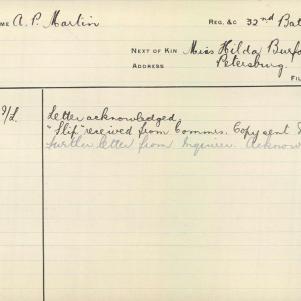 ME A. P. Martin REG. &C 32nd Bat
NEXT OF KIN Miss Hilda Burfo
ADDRESS Petersburg.
FIL
Letter acknowledged.
"Slip" received from Commrs. Copy sent
Further letter from Enquirer. Acknow